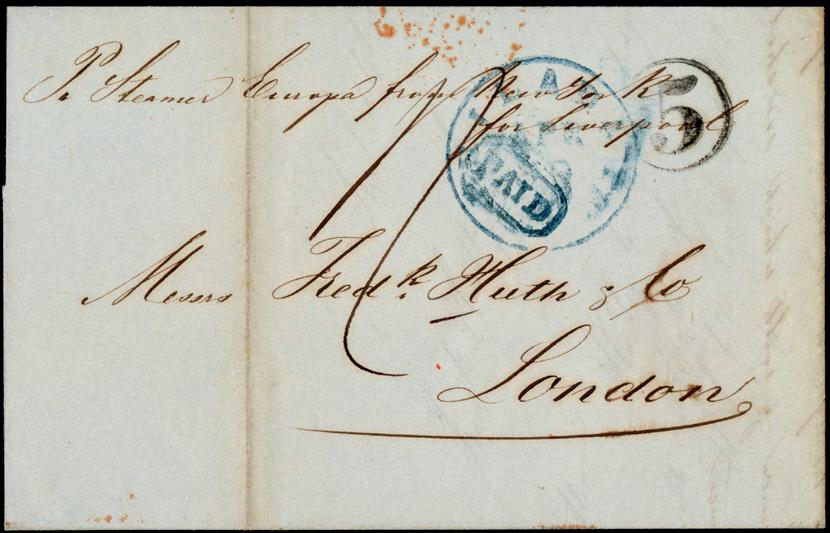 Pr Steamer Europa from New York
for Liverpool
5
PAID
Messrs Fredk. Huth & Co
London